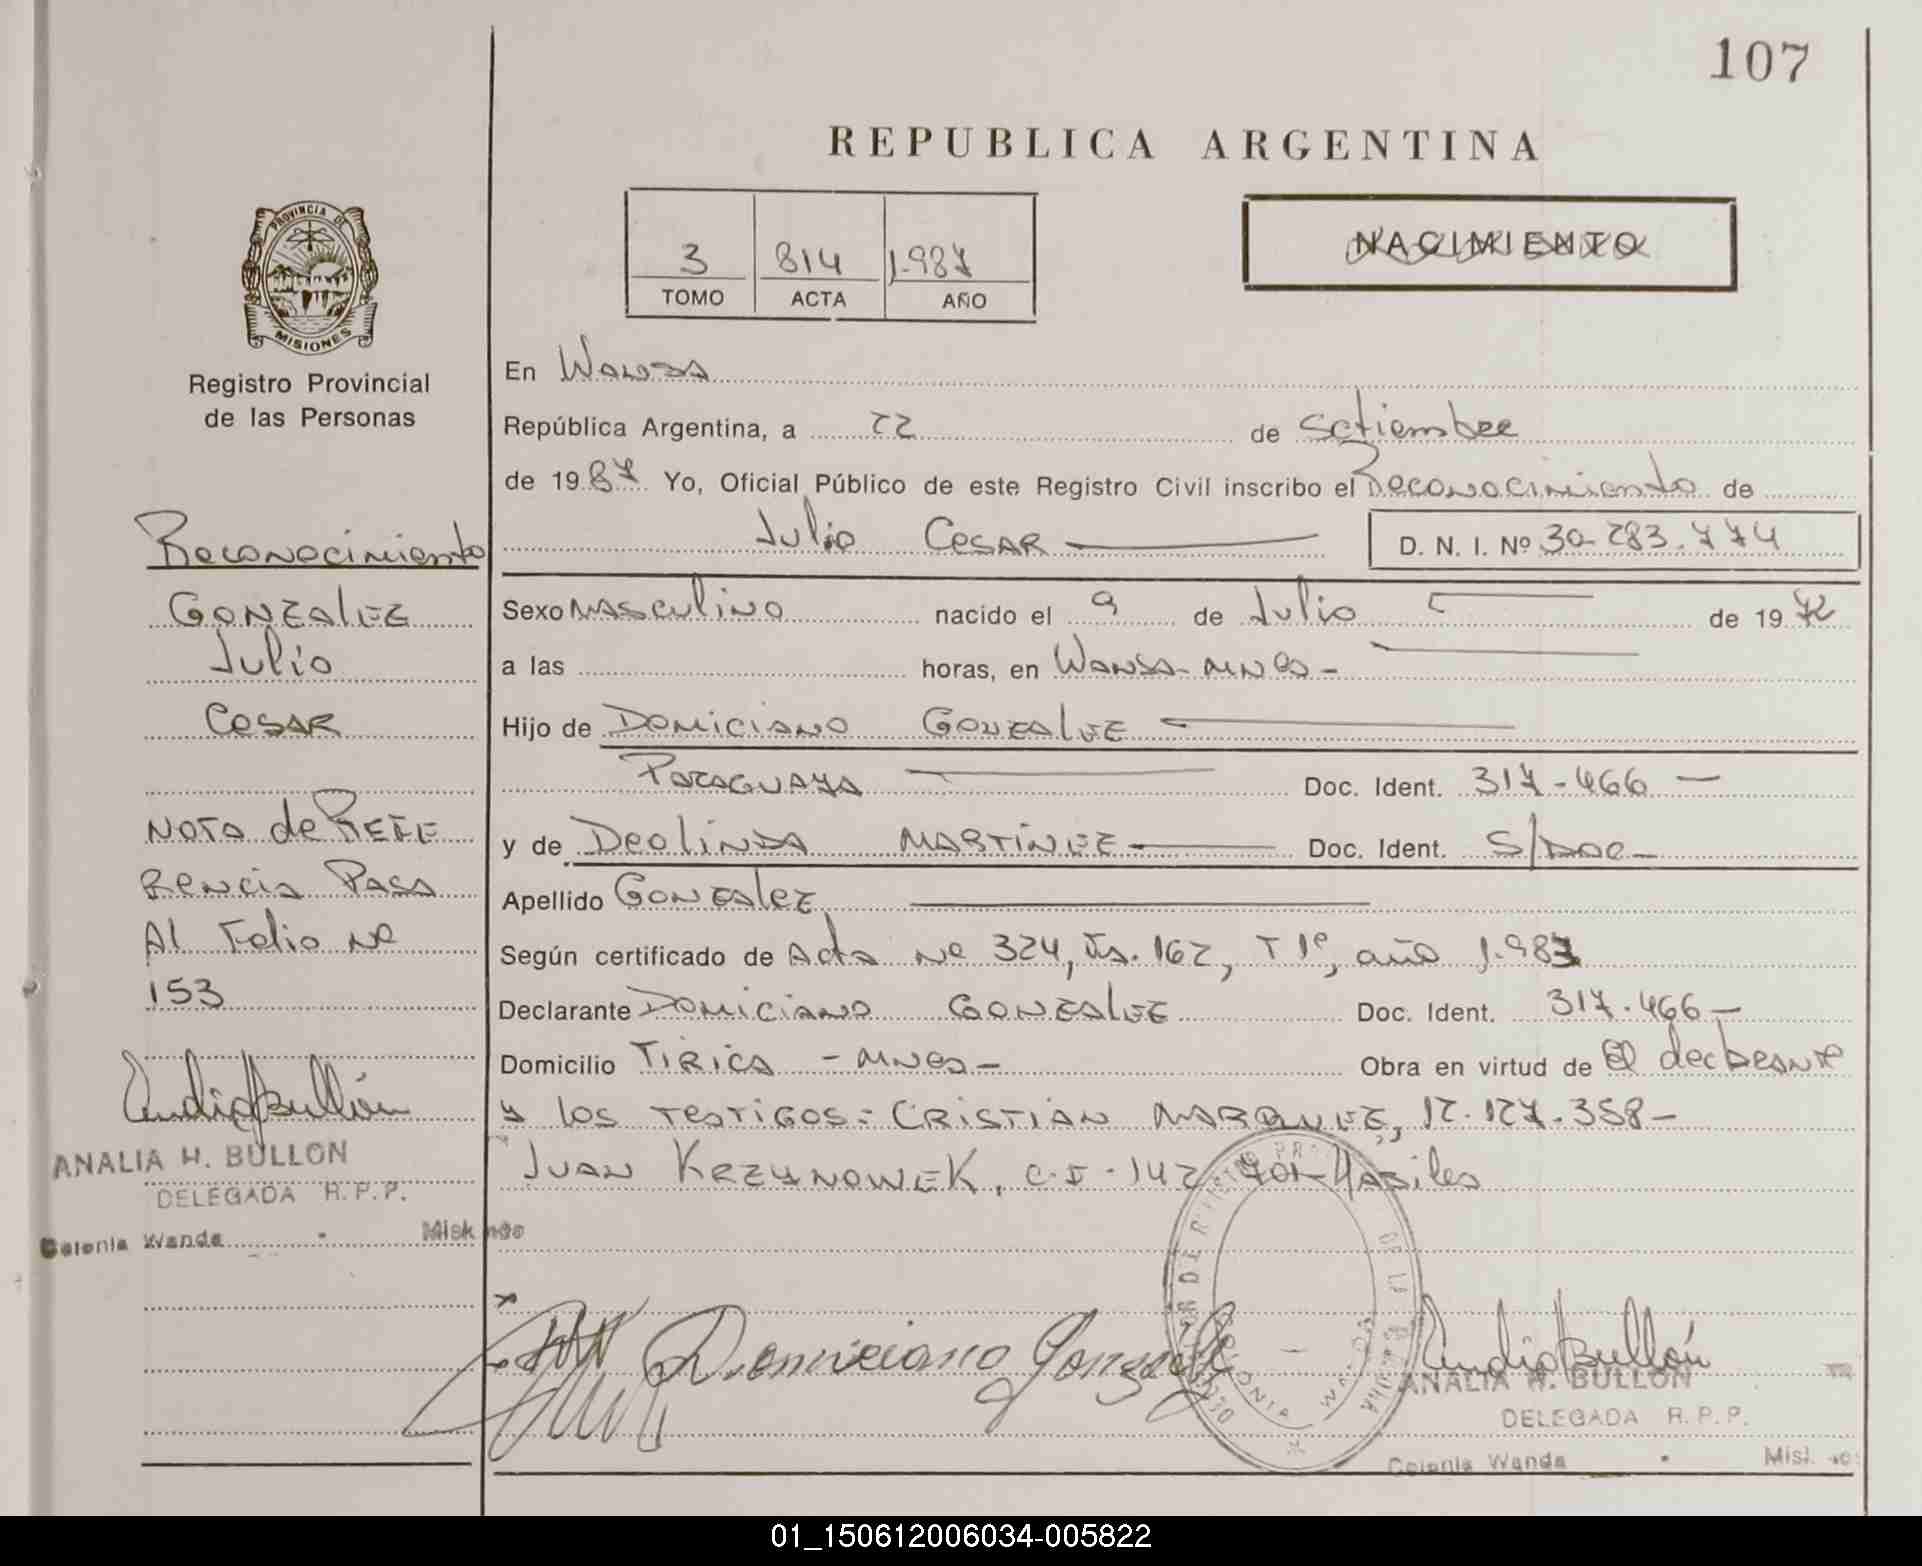 107
REPUBLICA ARGENTINA
3 814 1.987
TOMO ACTA AÑO
NACIMIENTO
PROVINCIA DE
MISIONES
Registro Provincial
de las Personas
En Wanda
República Argentina, a 22 de Setiembre
de 1987 Yo, Oficial Público de este Registro Civil inscribo el Reconocimiento de
Julio Cesar D. N. I. Nº 30-283.774
Sexo masculino nacido el 9 de Julio de 1972
a las horas, en Wanda-Mnes-
Hijo de Domiciano Gonzalez
Paraguaya Doc. Ident. 317-466 —
y de Deolinda Martínez Doc. Ident. S/Doc-
Apellido Gonzalez
Según certificado de Acta Nº 324, Fs. 162, T 1º, año 1.987
Declarante Domiciano Gonzalez Doc. Ident. 317.466—
Domicilio Tirica - Mnes- Obra en virtud de El declarante
y los testigos: Cristian Marquez, 12.127.358-
Juan Krzynowek, C.I. 142 701 Habiles
Reconocimiento
Gonzalez
Julio
Cesar
Nota de Refe
rencia Pasa
Al Folio Nº
153
ANALIA H. BULLON
DELEGADA R.P.P.
Colonia Wanda
Domiciano Gonzalez
ANALIA H. BULLON
DELEGADA R.P.P.
Colonia Wanda
01_150612006034-005822